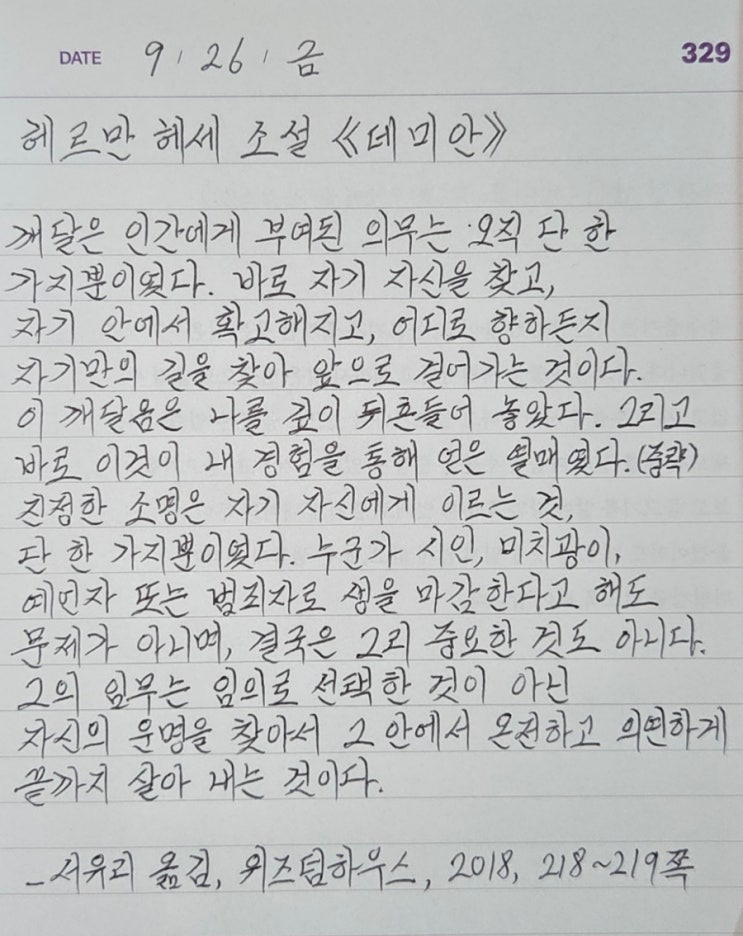 DATE 9 / 26 / 금 329
헤르만 헤세 소설 《데미안》
깨달은 인간에게 부여된 의무는 오직 단 한
가지뿐이었다. 바로 자기 자신을 찾고,
자기 안에서 확고해지고, 어디로 향하든지
자기만의 길을 찾아 앞으로 걸어가는 것이다.
이 깨달음은 나를 깊이 뒤흔들어 놓았다. 그리고
바로 이것이 내 경험을 통해 얻은 열매였다. (중략)
진정한 소명은 자기 자신에게 이르는 것,
단 한 가지뿐이었다. 누군가 시인, 미치광이,
예언자 또는 범죄자로 생을 마감한다고 해도
문제가 아니며, 결국은 그리 중요한 것도 아니다.
그의 임무는 임의로 선택한 것이 아닌
자신의 운명을 찾아서 그 안에서 온전하고 의연하게
끝까지 살아 내는 것이다.
_서유리 옮김, 위즈덤하우스, 2018, 218~219쪽